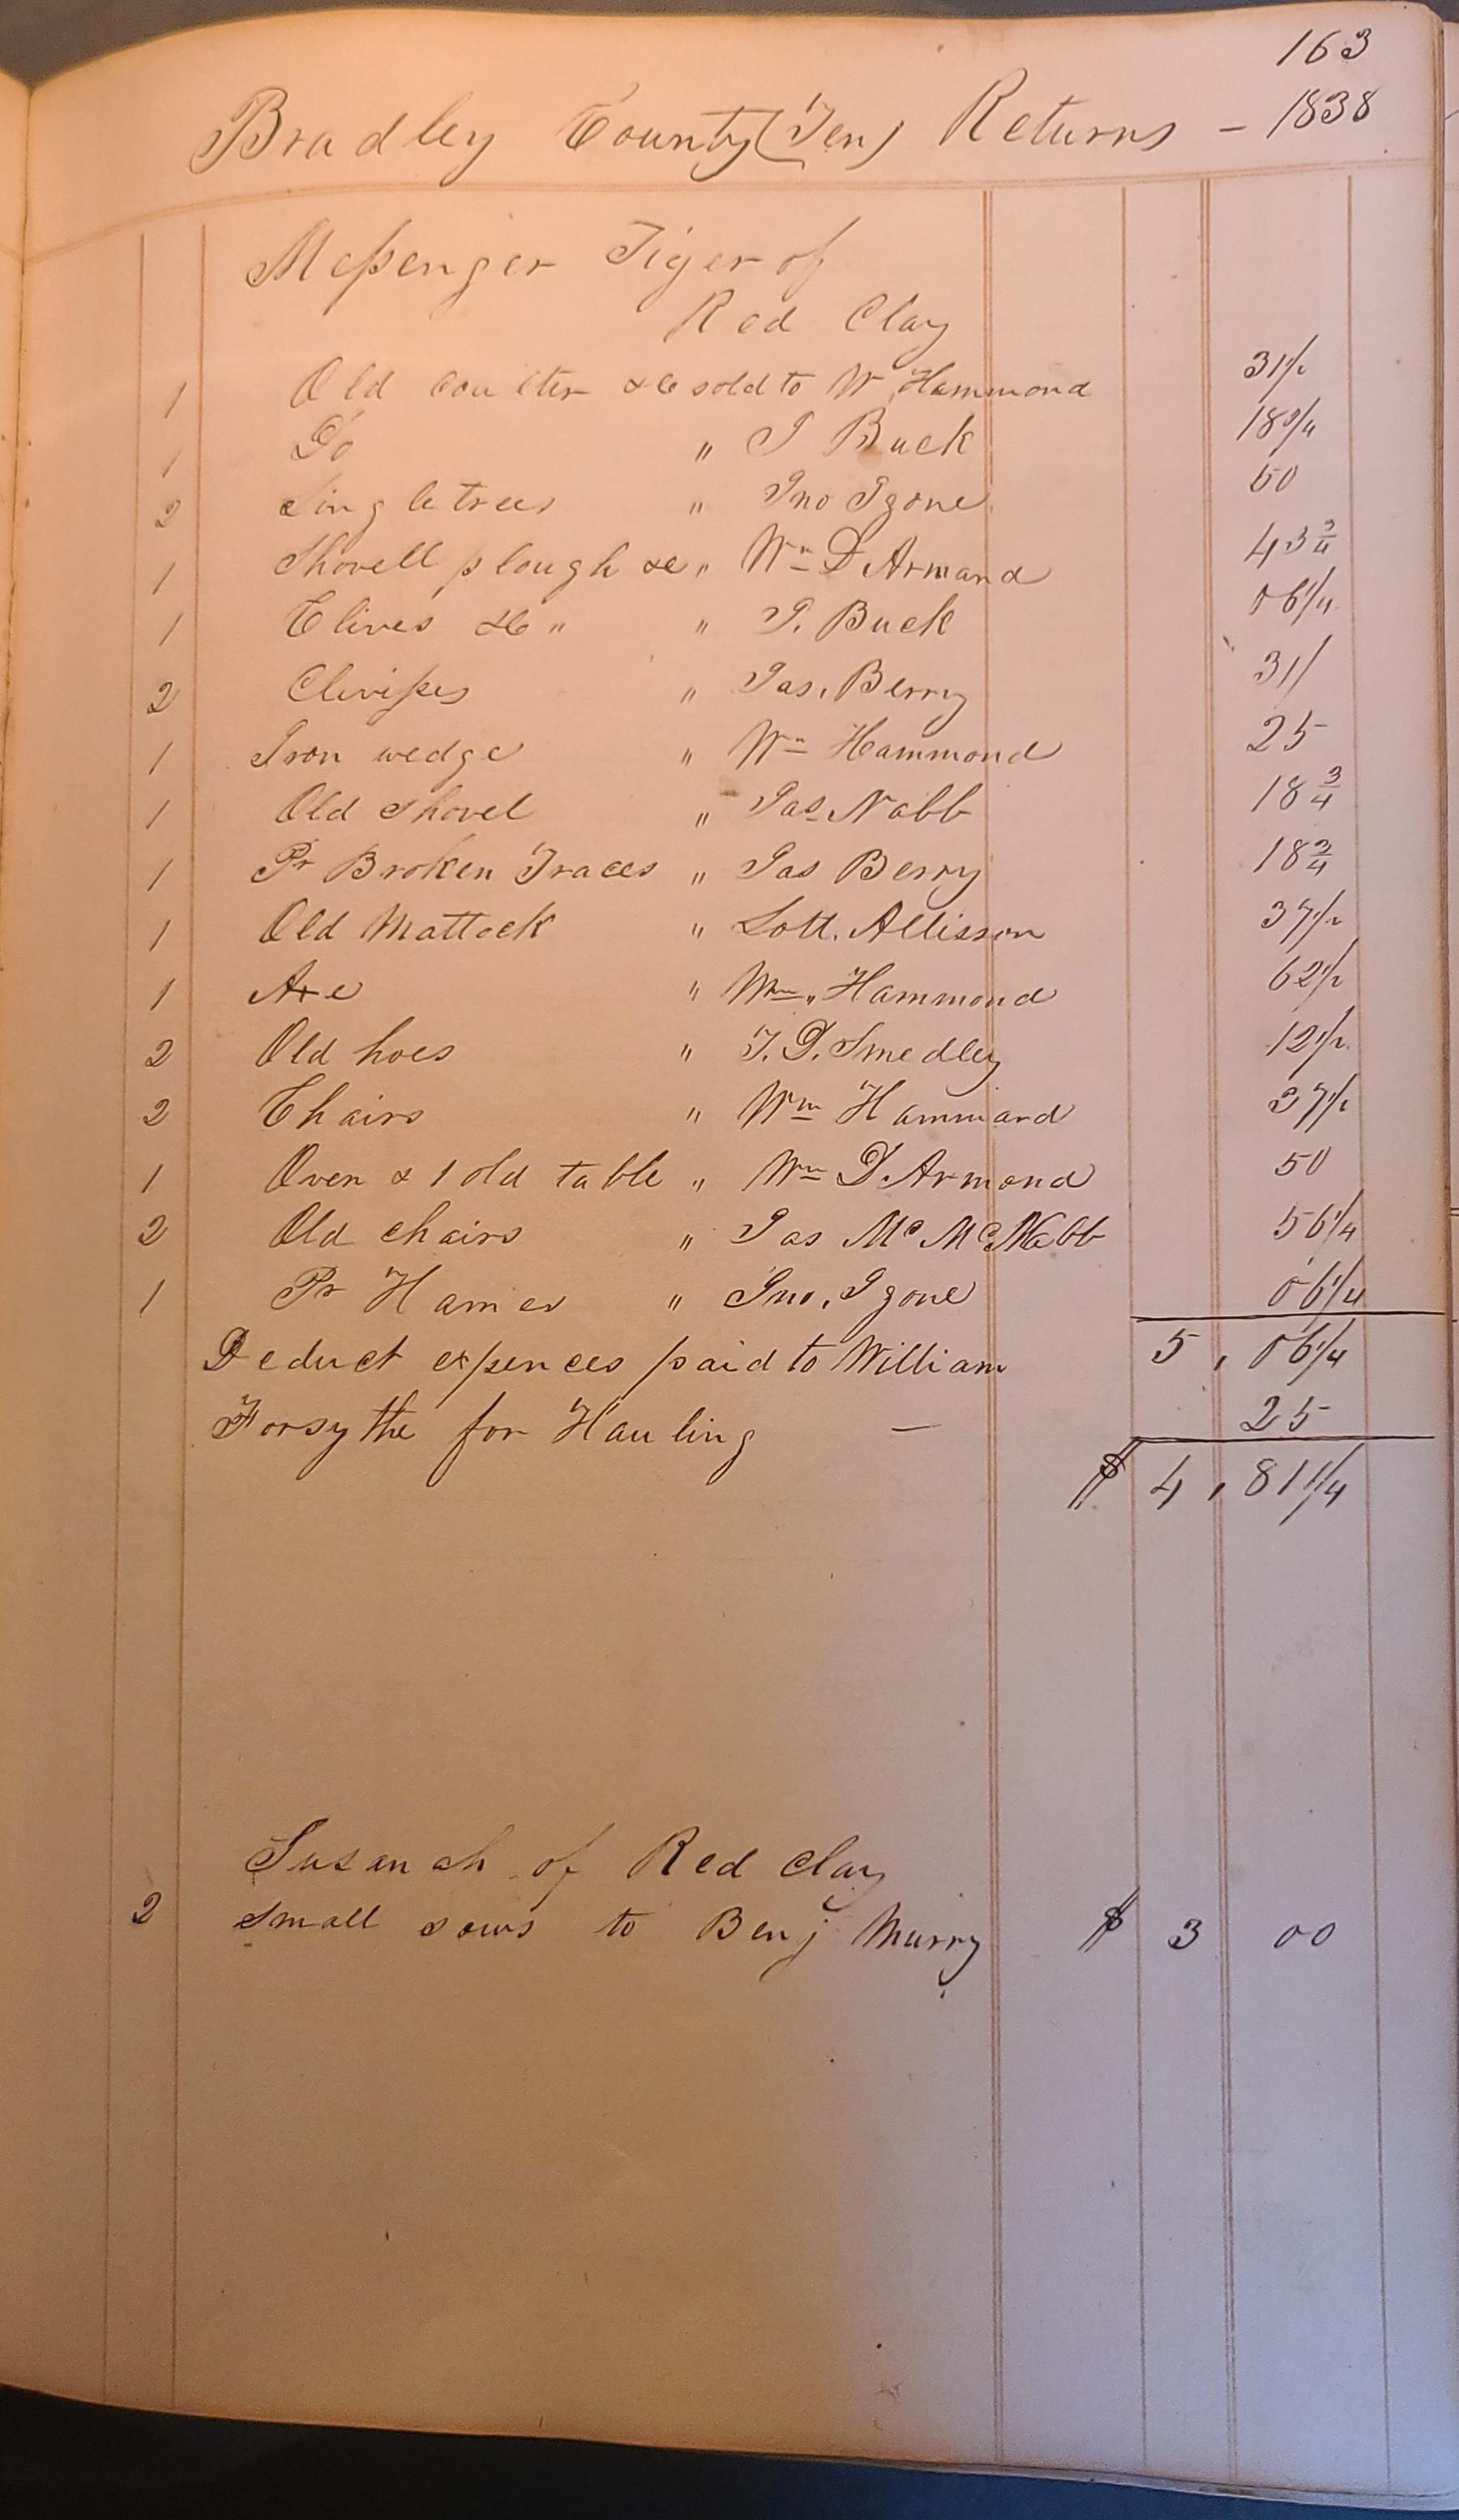 163
Bradley County (Ten) Returns - 1838
Messenger Tiger of
Red Clay
1 Old coulter &c sold to W. Hammond 31 1/2
1 Do " J Buck 18 3/4
2 Singletrees " Jno Igone 50
1 Shovell plough &c " Wm D Armand 43 3/4
1 Clives &c " " J. Buck 06 1/4
2 Clivisses " Jas. Berry 31/
1 Iron wedge " Wm Hammond 25
1 Old Shovel " Jas Nabb 18 3/4
1 Pr Broken Traces " Jas Berry 18 3/4
1 Old Mattock " Lott. Allisson 37 1/2
1 Axe " Wm " Hammond 62 1/2
2 Old hoes " T. D. Smedley 12 1/2
2 Chairs " Wm Hammond 37 1/2
1 Oven & 1 old table " Wm D. Armond 50
2 Old chairs " Jas Mc McNabb 56 1/4
1 Pr Hames " Jno. Igone 06 1/4
Deduct expences paid to William 5, 06 1/4
Forsythe for Hauling — 25
$ 4, 81 1/4
Susanah of Red Clay
2 Small sows to Benj Murry $ 3 00